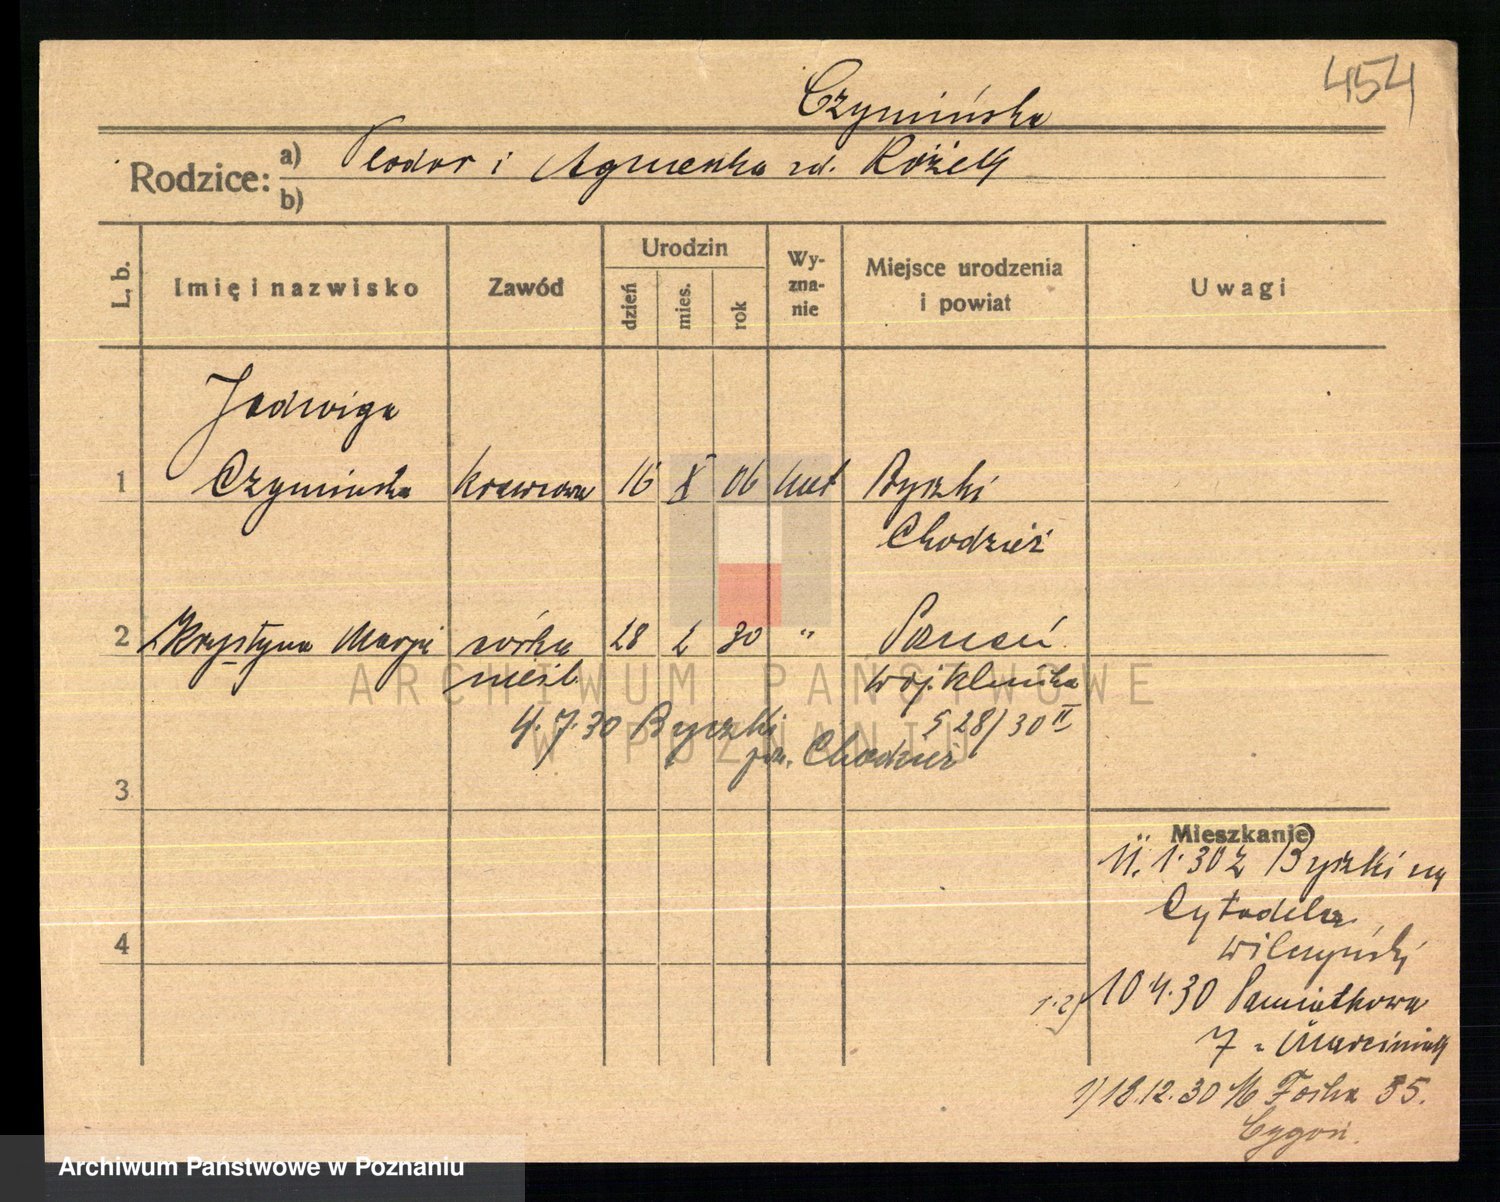 454
Czymińska
Rodzice: a) Teodor i Agnieszka zd. Kozieł
b)
L. b. Imię i nazwisko Zawód Urodzin dzień mies. rok Wyznanie Miejsce urodzenia i powiat Uwagi
Jadwiga
1 Czymińska krawcowa 16 X 06 kat Byszki
Chodzież
2 Krystyna Marja córka 28 2 30 " Poznań
nieśl. woj. klinika
4.7.30 Byszki 528/30 II
pow. Chodzież
3
Mieszkanie
11.1.30 z Byszki na
Cytadela
4
Wilczyński
10 4.30 Pamiątkowa
7 - Marciniak
1/ 18.12.30 Focha 35.
Cygoń.
ARCHIWUM PAŃSTWOWE
W POZNANIU
Archiwum Państwowe w Poznaniu